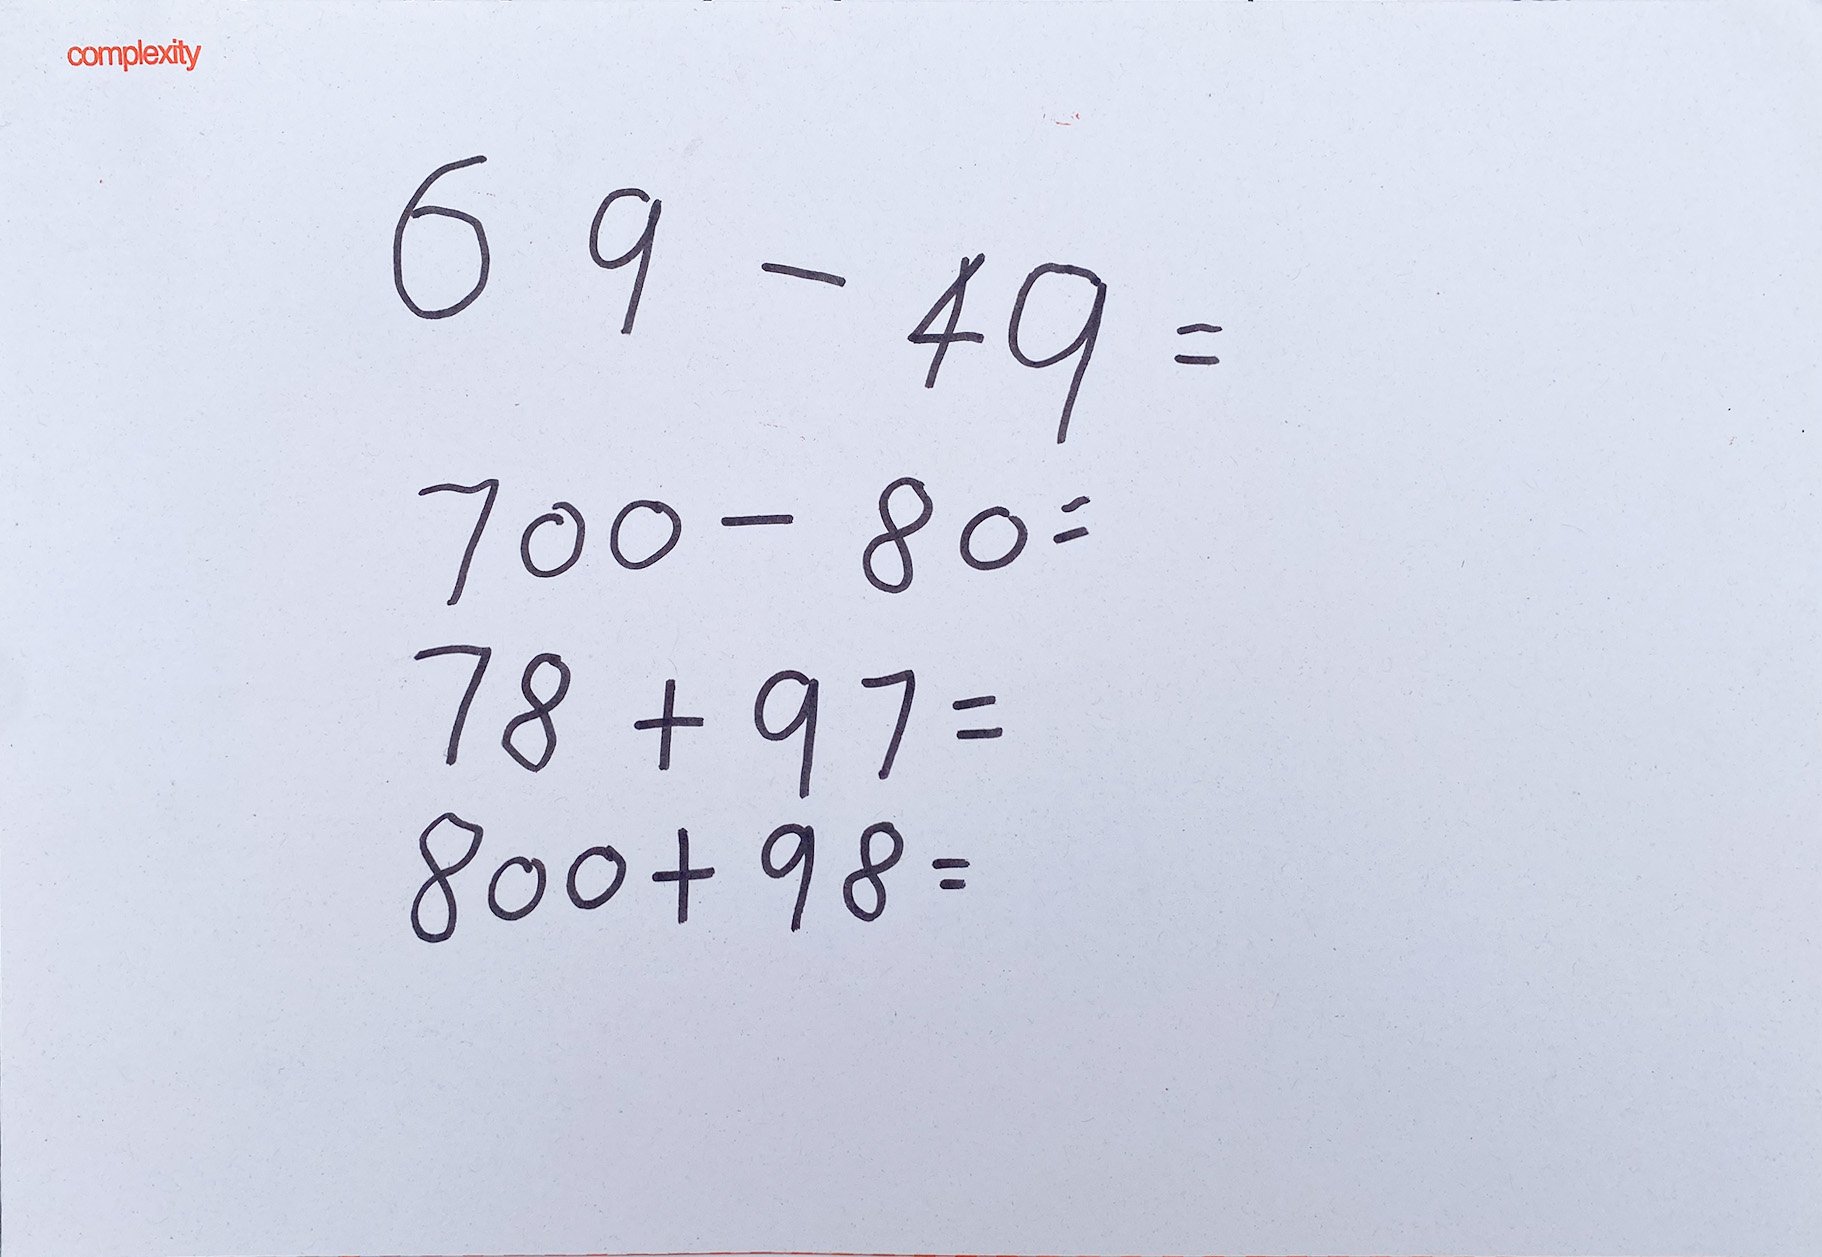 complexity
69 - 49 =
700 - 80 =
78 + 97 =
800 + 98 =